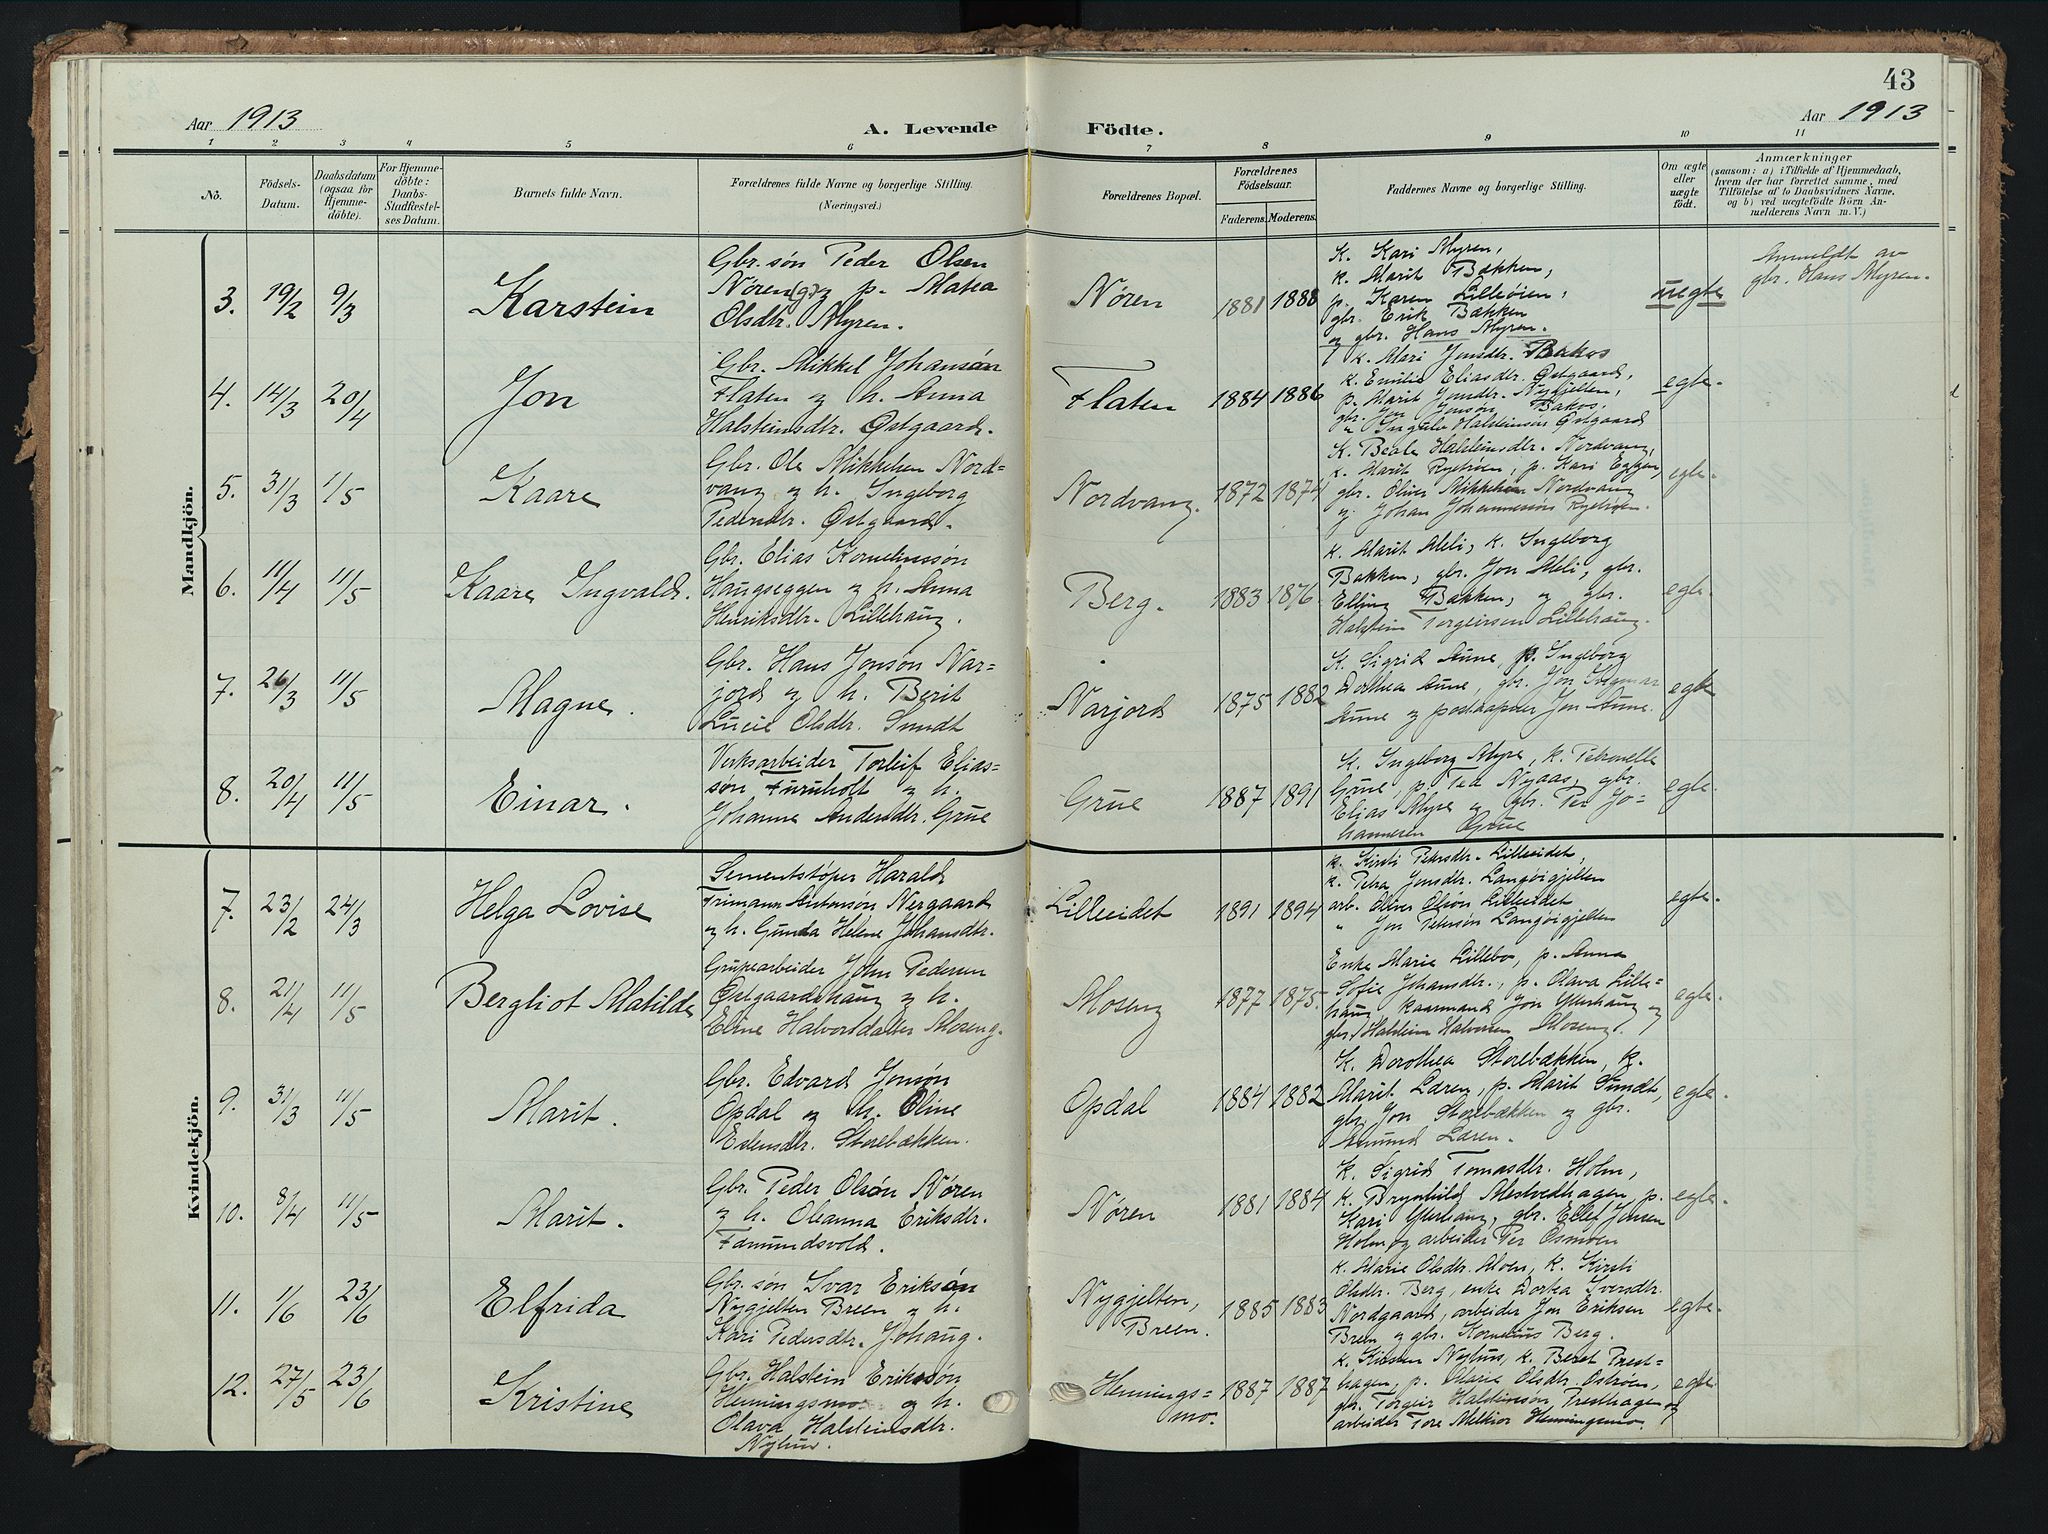 43
Aar 1913
A. Levende Födte.
Aar 1913
1 2 3 4 5 6 7 8 9 10 11
No.
Födsels-Datum.
Daabsdatum (ogsaa for Hjemme-döbte).
For Hjemme-döbte: Daabs-Stadfæstel-ses Datum.
Barnets fulde Navn.
Forældrenes fulde Navne og borgerlige Stilling. (Næringsvei.)
Forældrenes Bopæl.
Forældrenes Födselsaar.
Faderens. Moderens.
Faddernes Navne og borgerlige Stilling.
Om ægte eller uægte födt.
Anmærkninger
(saasom: a) i Tilfælde af Hjemmedaab,
hvem der har forrettet samme, med
Tilföielse af to Daabsvidners Navne.
og b) ved uegtefödte Börn An-
melderens Navn m. V.)
Mandkjön.
3. 19/2 9/3
Karstein
Gbr. søn Peder Olsen
Nøren (g) og p. Matea
Olsdtr. Myren.
Nøren
1881 1888
K. Kari Myren,
k. Marit Bækken,
p. Karen Lilleøien,
gbr. Erik Bækken
og gbr. Hans Myren.
uegte
Anmeldt av
gbr. Hans Myren.
4. 14/3 20/4
Jon
Gbr. Mikkel Johansøn
Flaten og h. Anna
Halsteinsdtr. Østgaard.
Flaten
1884 1886
k. Mari Jonsdtr. Bakos
k. Emilie Eliasdtr. Østgaard,
p. Marit Jonsdtr. Nygjelten,
gbr. Jon Jonsøn Bakos.
" Ingulv Halsteinsøn Østgaard
egte.
5. 31/3 1/5
Kaare
Gbr. Ole Mikkelsen Nord=
vang og h. Ingeborg
Pedersdtr. Østgaard.
Nordvang.
1872 1874
K. Beate Halsteinsdtr. Nordvang,
k. Marit Ryetrøen, p. Kari Eggen,
gbr. Oliver Mikkelsen Nordvang
og Johan Johannessøn Ryetrøen.
egte.
6. 11/4 11/5
Kaare Ingvald.
Gbr. Elias Korneliussøn
Haugseggen og h. Anna
Henriksdtr. Lillehaug.
Berg.
1883 1876
k. Marit Meli, k. Ingeborg
Bakken, gbr. Jon Meli, gbr.
Elling Bakken, og gbr.
Halstein Torgeirsen Lillehaug.
egte.
7. 26/3 11/5
Magne.
Gbr. Hans Jonsøn Nar=
jord og h. Berit
Lucie Olsdtr. Smidt
Narjord
1875 1882
K. Sigrid Aune, p. Ingeborg
Dorthea Aune, gbr. Jon Ingmar
Aune og postaapner Jon Aune.
egte
8. 20/4 11/5
Einar.
Verksarbeider Torleif Elias-
søn Furuholt og h.
Johanne Andersdtr. Grue
Grue
1887 1891
K. Ingeborg Myre, k. Petronelle
Grue, p. Tea Nyaas, gbr.
Elias Myre og gbr. Per Jo-
hannesen Grue
egte.
Kvindekjön.
7. 23/2 24/3
Helga Lovise
Sementstøper Harald
Trimann Antonsøn Nergaard
og h. Gunda Helene Johansdtr.
Lilleeidet
1891 1894
k. Kirsti Petersdtr. Lilleeidet,
k. Petra Jonsdtr. Langøigjelten
arb. Oliver Olsøn Lilleeidet
" Jon Petersøn Langøigjelten
egte.
8. 21/4 11/5
Bergliot Matilde
Grubearbeider John Pedersen
Østgaardshaug og h.
Eline Halvorsdatter Moseng.
Moseng
1877 1875.
Enke Marie Lillebo, p. Anna
Sofie Johansdtr., p. Olava Lille=
haug kaarmand Jon Ytterhaug og
gbr. Halstein Halvorsen Moseng.
egte.
9. 31/3 11/5
Marit.
Gbr. Edvard Jonsøn
Opdal og h. Oline
Estensdtr. Storebækken.
Opdal
1884 1882
K. Dorothea Storebækken, k.
Marit Læren, p. Marit Smidt,
gbr. Jon Storebækken og gbr.
Amund Læren.
egte.
10. 8/4 11/5
Marit.
Gbr. Peder Olsøn Nøren
og h. Oleanna Eriksdtr.
Edmundsvold.
Nøren
1881 1884
k. Sigrid Tomasdtr. Holm,
k. Brynhild Mestvedhagen, p.
Kari Ytterhaug, gbr. Ellef Jensen
Holm og arbeider Per Osmoen
egte.
11. 1/6 23/6
Elfrida
Gbr. søn Ivar Eriksøn
Nygjelten Breen og h.
Kari Pedersdtr. Johaug.
Nygjelten,
Breen.
1885 1883
k. Marie Olsdr. Moen, k. Kirsti
Olsdr. Berg, enke Dortea Iversdtr.
Nordgaard, arbeider Jon Eriksen
Breen og gbr. Kornelius Berg.
egte.
12. 27/5 23/6
Kristine
Gbr. Halstein Eriksøn
Henningsmo og h.
Olava Halsteinsdtr.
Nyhus.
Hennings=
mo.
1887 1887
k. Kirsten Nyhus, k. Beret Prest=
hagen, p. Marie Olsdtr. Østrøen,
gbr. Torgeir Halsteinsøn Presthagen og
arbeider Tore Melkior Henningsmo.
egte